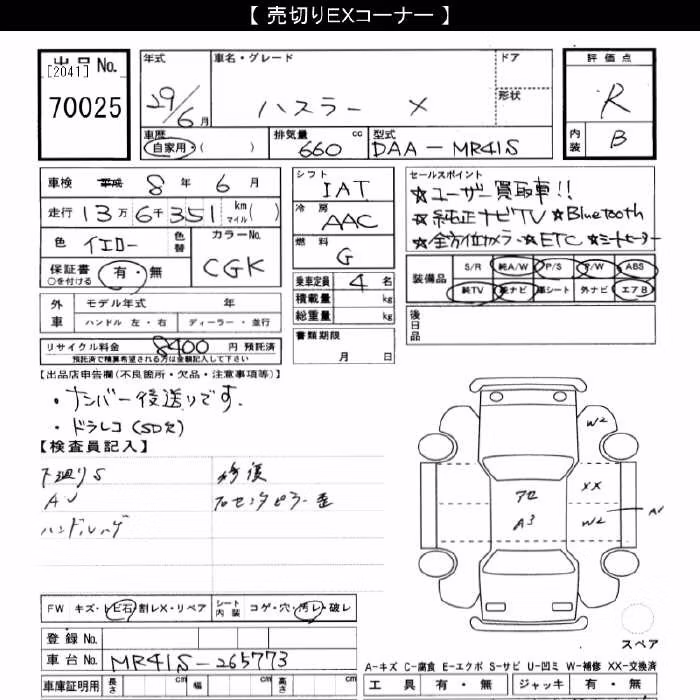 【 売切りEXコーナー 】
出品No.
[2041]
70025
年式
29/6月
車名・グレード
ハスラー X
ドア
形状
評価点
R
内装
B
車歴
自家用・( )
排気量
660 cc
型式
DAA-MR41S
車検 平成 8年 6月
走行 13万6千351 km マイル( )
色 イエロー
色替
カラーNo.
CGK
保証書 ○を付ける 有・無
外車
モデル年式 年
ハンドル 左・右
ディーラー・並行
リサイクル料金 8400円 預託済
預託済で精算希望される方は金額記入して下さい
シフト
IAT
冷房
AAC
燃料
G
乗車定員 4名
積載量 kg
総重量 kg
書類期限
月 日
セールスポイント
☆ユーザー買取車!!
☆純正ナビTV ☆Bluetooth
☆全方位カメラ ☆ETC ☆シートヒーター
装備品
S/R 純A/W P/S P/W ABS
純TV 純ナビ 革シート 外ナビ エアB
後日品
【出品店申告欄(不良箇所・欠品・注意事項等)】
・ナンバー後送りです.
・ドラレコ(SD欠)
【検査員記入】
下廻りS
修復
AU
ハンドル
FW キズ・トビ石・割レX・リペア
シート内装
コゲ・穴・汚レ・破レ
登録No.
車台No. MR41S-265773
車庫証明用
長さ cm
幅 cm
高さ cm
W2
XX
W2
A3
A1
スペア
A-キズ C-腐食 E-エクボ S-サビ U-凹ミ W-補修 XX-交換済
工具 有・無
ジャッキ 有・無